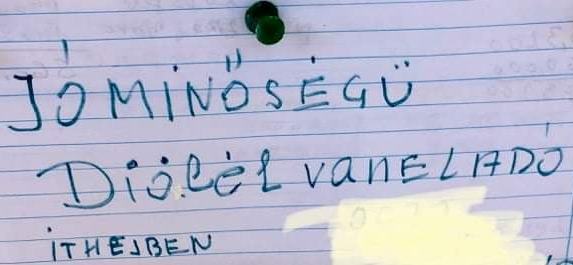 JÓMINŐSÉGÜ
Dióbél vanELADÓ
ITHEJBEN